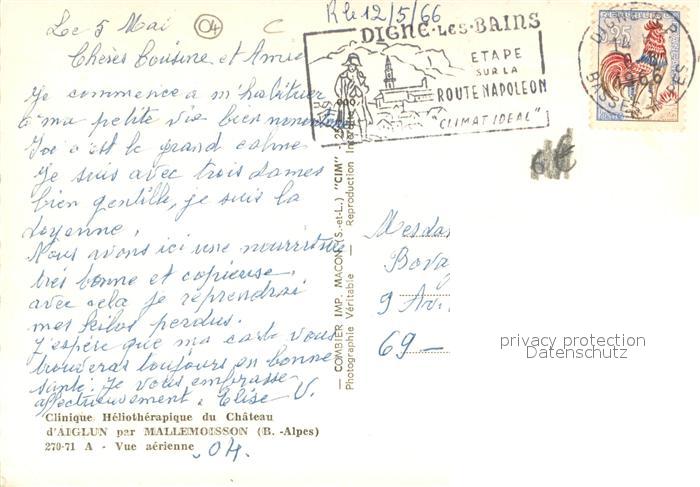 Le 5 Mai
04
C
R le 12/5/66
Chères Cousine et Amie
Je commence a m'habituer
a ma petite vie bien
Ici c'est le grand calme
Je suis avec trois dames
bien gentille, je suis la
doyenne.
Nous avons ici une nourriture
très bonne et copieuse,
avec cela je reprendrai
mes kilos perdus.
J'espère que ma carte vous
trouveras toujours en bonne
santé. Je vous embrasse
affectueusement. Elise V.
Clinique Héliothérapique du Château
d'AIGLUN par MALLEMOISSON (B. -Alpes)
270-71 A - Vue aérienne
04.
— COMBIER IMP. MACON (S.-et-L.) "CIM"
Photographie Véritable — Reproduction
DIGNE-LES-BAINS
ETAPE
SUR LA
ROUTE NAPOLEON
"CLIMAT IDEAL"
25
1966
6€
Mesda
Bova
9 Av.
69 —
privacy protection
Datenschutz